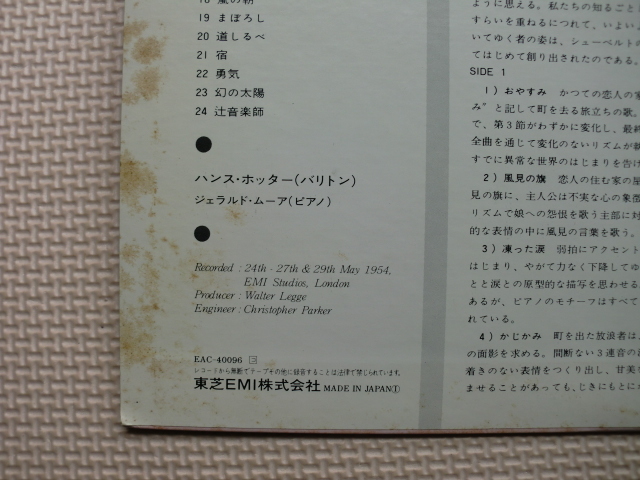 18 嵐の朝
19 まぼろし
20 道しるべ
21 宿
22 勇気
23 幻の太陽
24 辻音楽師
ハンス・ホッター(バリトン)
ジェラルド・ムーア(ピアノ)
Recorded : 24th - 27th & 29th May 1954,
EMI Studios, London
Producer : Walter Legge
Engineer : Christopher Parker
EAC-40096
レコードから無断でテープその他に録音することは法律で禁じられています。
東芝EMI株式会社 MADE IN JAPAN Ⓘ
ように思える。私たちの知るごと
すらいを重ねるにつれて、いよい
いてゆく者の姿は、シューベルトの
てはじめて創り出されたのである。
SIDE 1
1) おやすみ かつての恋人の家
み” と記して町を去る旅立ちの歌。
で、第3節がわずかに変化し、最終
全曲を通じて変化のないリズムが
すでに異常な世界のはじまりを告げ
2) 風見の旗 恋人の住む家の屋
見の旗に、主人公は不実な心の象徴
リズムで娘への怨恨を歌う主部に対
的な表情の中に風見の言葉を歌う。
3) 凍った涙 弱拍にアクセント
はじまり、やがて力なく下降してゆ
とと涙との原型的な描写を思わせる
あるが、ピアノのモチーフはすべて
れている。
4) かじかみ 町を出た放浪者は、
の面影を求める。間断ない3連音の
着きのない表情をつくり出し、甘美
ませることがあっても、じきにもとに